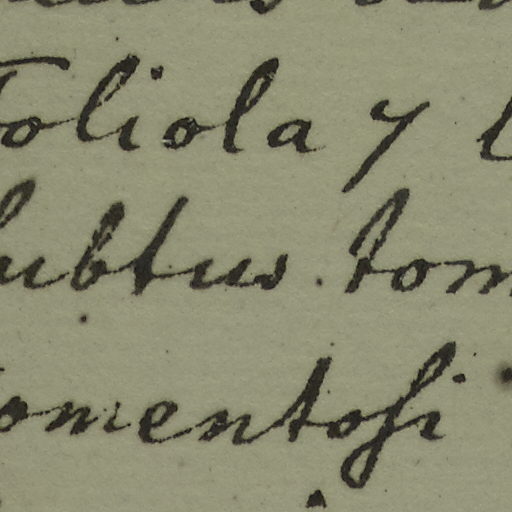 Foliola 7
subtus tom
tomentosi